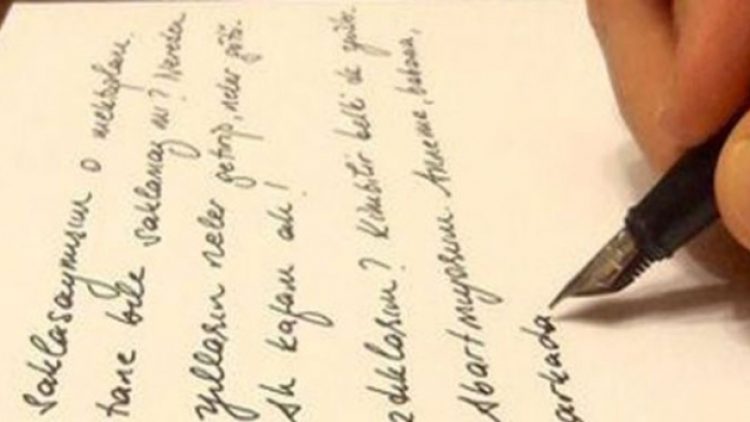 saklasaymışım o mektupları.
tane bile saklamaz mı? Nereden
yılların neler getirip, neler götü.
Ah kafam ah!
zdıklarım? Kimbilir belki de
Abartmıyorum. Anneme, babama,
arkada